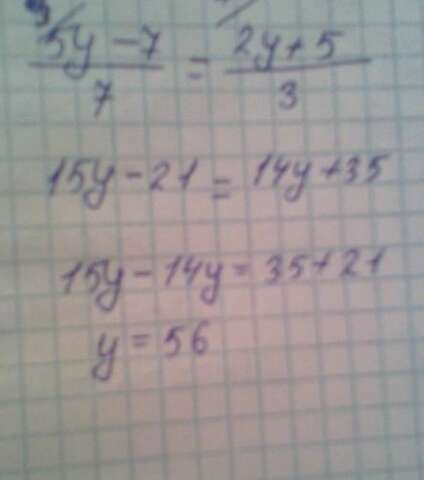 3/ 5y-7 / 7 = 2y+5 / 3
15y-21 = 14y+35
15y-14y = 35+21
y = 56